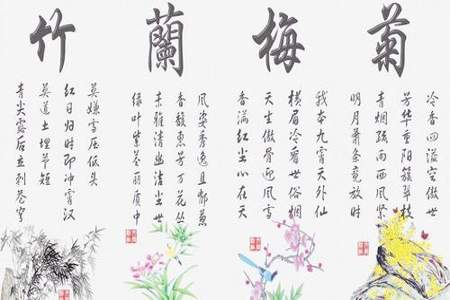 菊
冷香四溢空傲世
芳华重阳簇翠枝
青烟孤雨西风紧
明月萧条竟放时
梅
我本九霄天外仙
横眉冷看世俗烟
天生傲骨迎风雪
香满红尘心在天
蘭
风姿秀逸且郁葱
香馥惠芳万花丛
素雅清幽洁尘世
绿叶紫茎丽质中
竹
莫嫌雪压低头
红日归时即冲霄汉
莫道土埋节短
青尖露后立刺苍穹